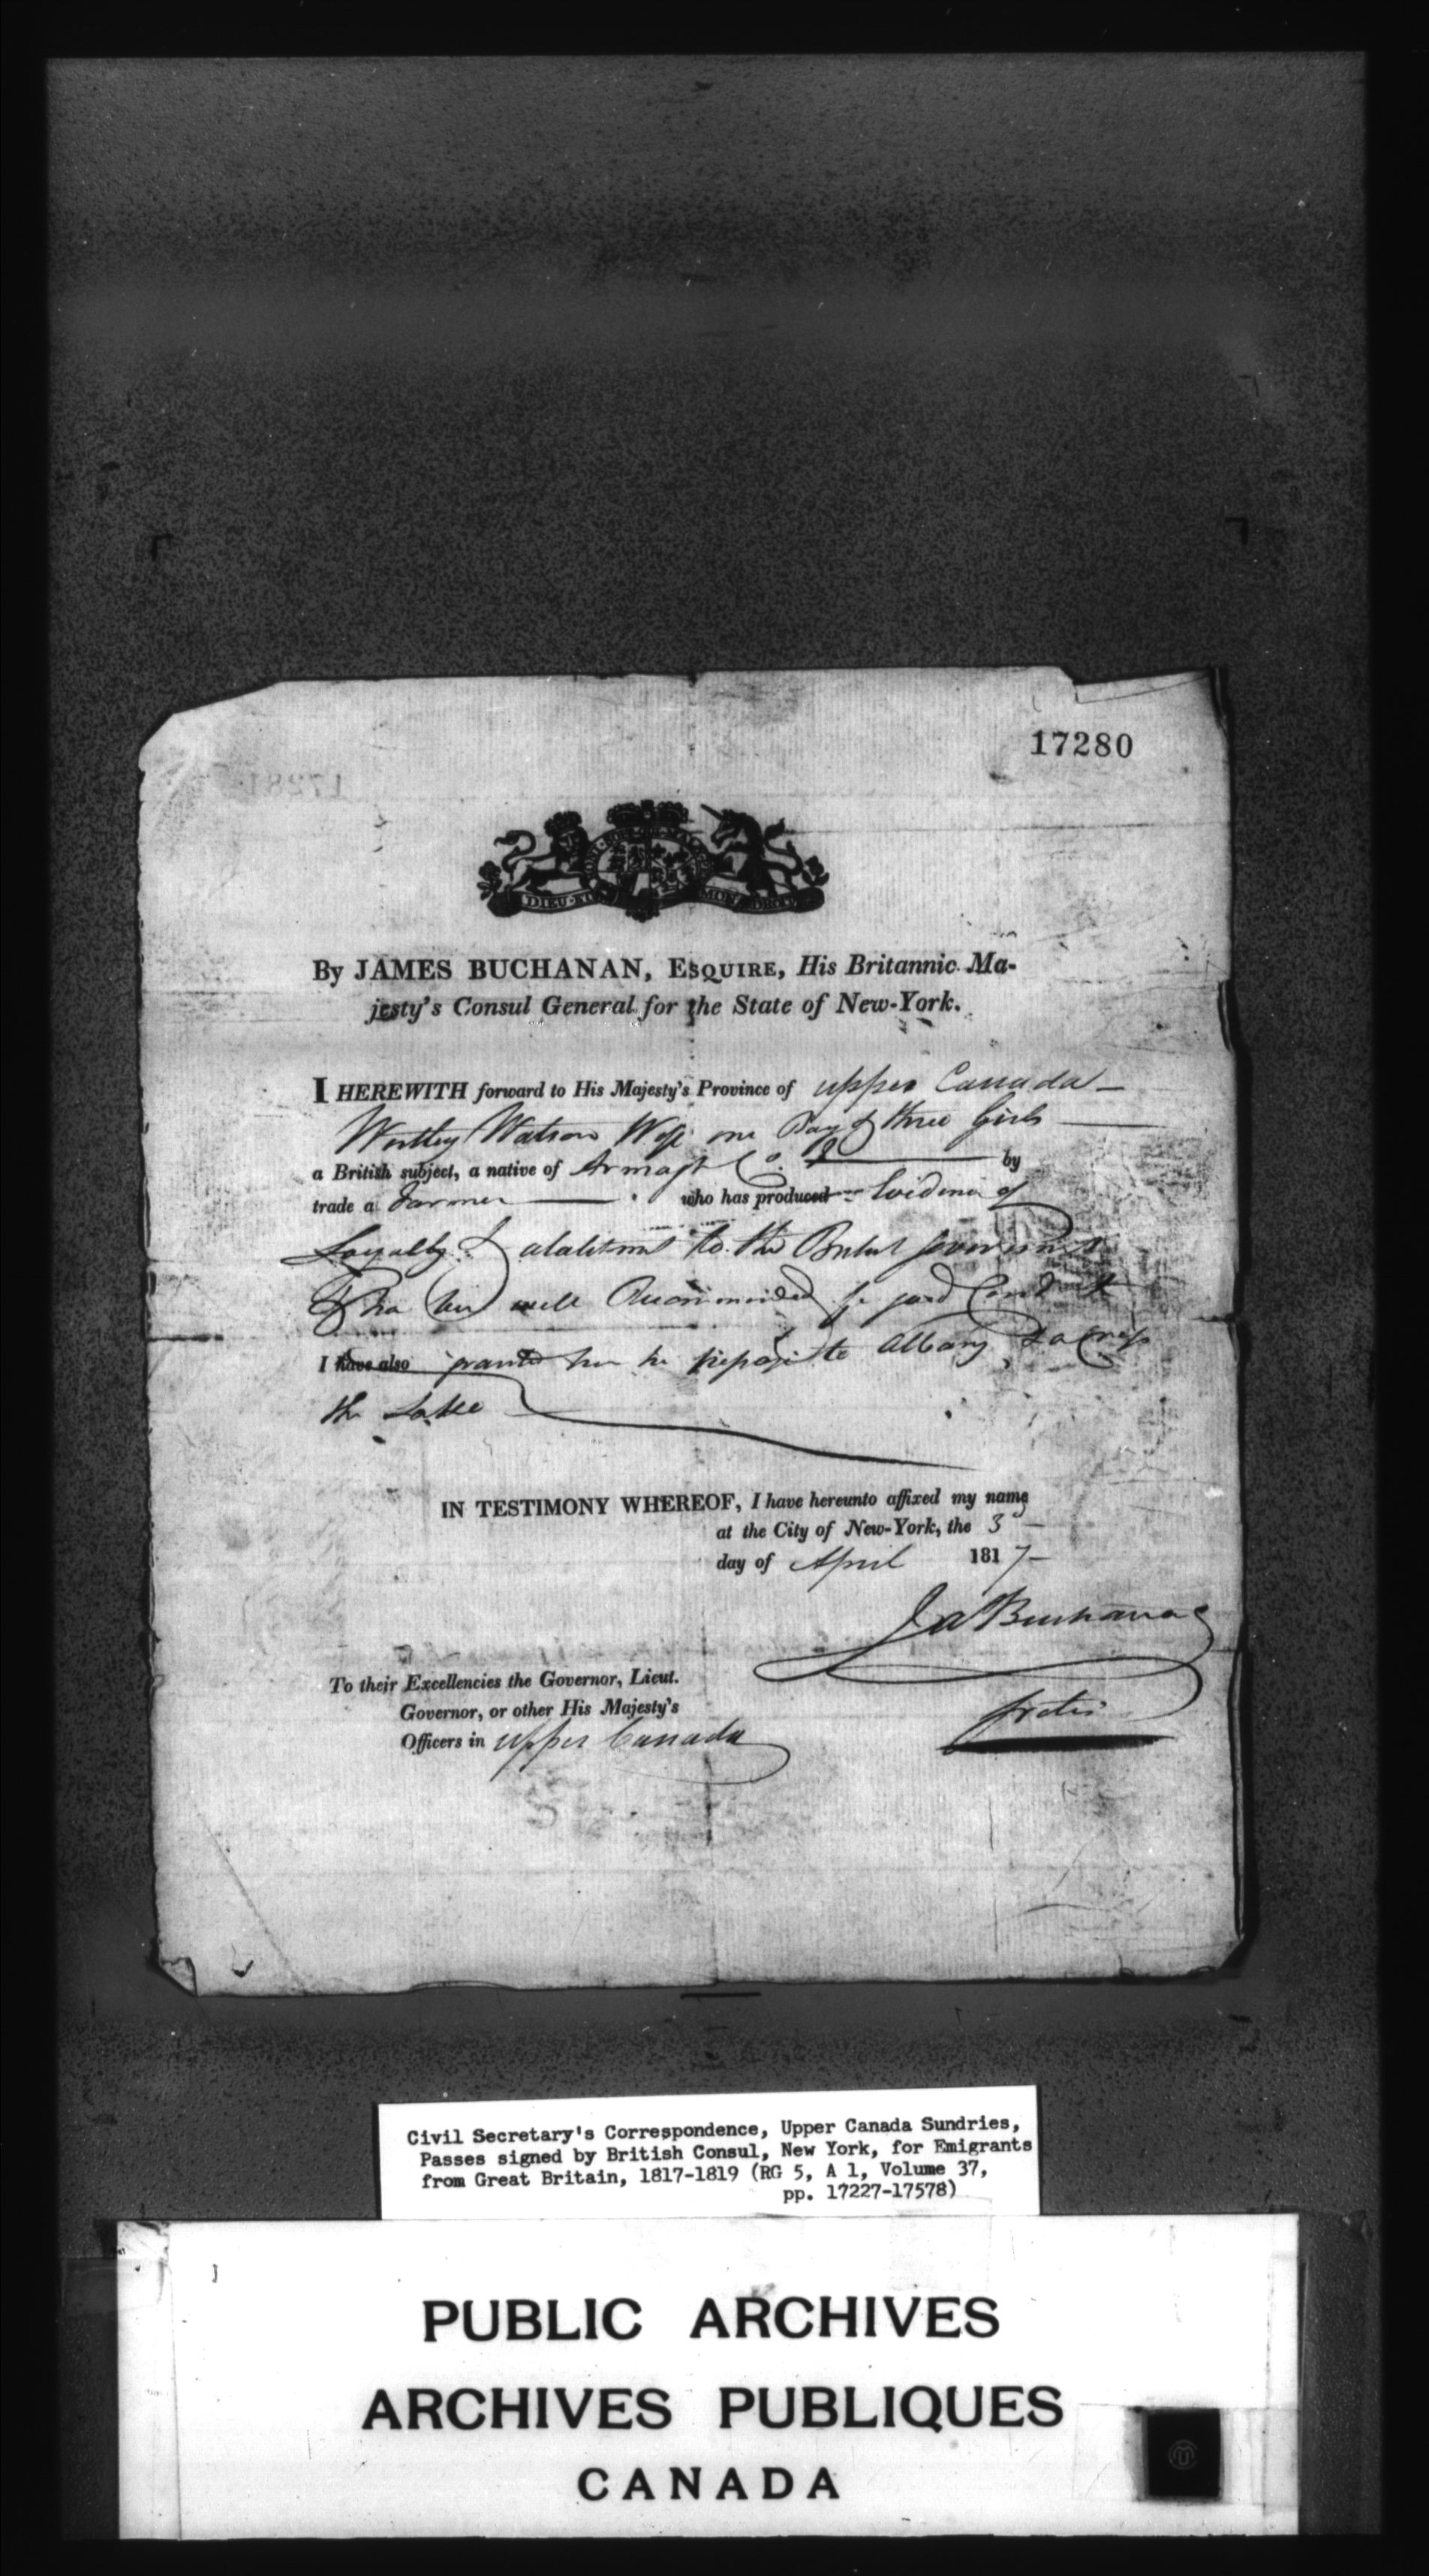 17280
17281
DIEU ET MON DROIT
By JAMES BUCHANAN, ESQUIRE, His Britannic Ma-
jesty's Consul General for the State of New-York.
I HEREWITH forward to His Majesty's Province of Upper Canada
Watson Wife one Boy & three Girls
a British subject, a native of Armagh Co. by
trade a Farmer who has produced Evidence of
Loyalty & to the British government
& has been well Recommended for good Conduct
I have also granted him passage to Albany & across
the Lake
IN TESTIMONY WHEREOF, I have hereunto affixed my name
at the City of New-York, the 3
day of April 1817
Ja Buchanan
Gratis
To their Excellencies the Governor, Lieut.
Governor, or other His Majesty's
Officers in Upper Canada
Civil Secretary's Correspondence, Upper Canada Sundries,
Passes signed by British Consul, New York, for Emigrants
from Great Britain, 1817-1819 (RG 5, A 1, Volume 37,
pp. 17227-17578)
PUBLIC ARCHIVES
ARCHIVES PUBLIQUES
CANADA